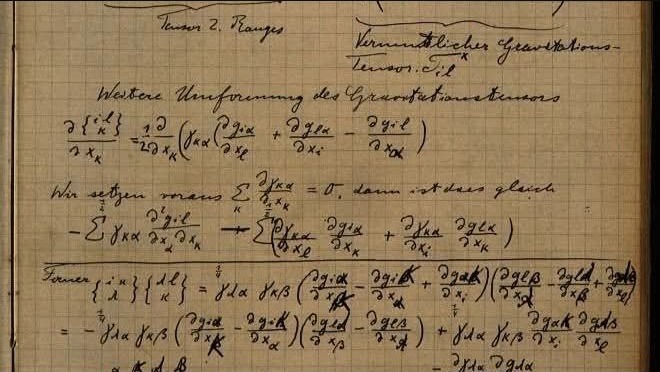 Tensor 2. Ranges
Vermutlicher Gravitations-
Tensor. T_il^x
Weitere Umformung des Gravitationstensors
∂{il κ}/∂x_κ = 1/2 ∂/∂x_κ (γ_κα (∂g_iα/∂x_l + ∂g_lα/∂x_i − ∂g_il/∂x_α)
Wir setzen voraus Σ_κ ∂γ_κα/∂x_κ = 0, dann ist dies gleich
− 1/2 Σ γ_κα ∂²g_il/∂x_α∂x_κ + 1/2 Σ (∂γ_κα/∂x_l ∂g_iα/∂x_κ + ∂γ_κα/∂x_i ∂g_lα/∂x_κ)
Ferner {iκ λ}{λl κ} = 1/4 γ_λα γ_κβ (∂g_iα/∂x_κ − ∂g_iκ/∂x_α + ∂g_ακ/∂x_i)(∂g_lβ/∂x_λ − ∂g_lλ/∂x_β + ∂g_λβ/∂x_l)
= − 1/4 γ_λα γ_κβ (∂g_iα/∂x_κ − ∂g_iκ/∂x_α)(∂g_lλ/∂x_β − ∂g_lβ/∂x_λ) + 1/4 γ_λα γ_κβ ∂g_ακ/∂x_i ∂g_λβ/∂x_l
α κ λ β − ∂γ_λα ∂g_λα